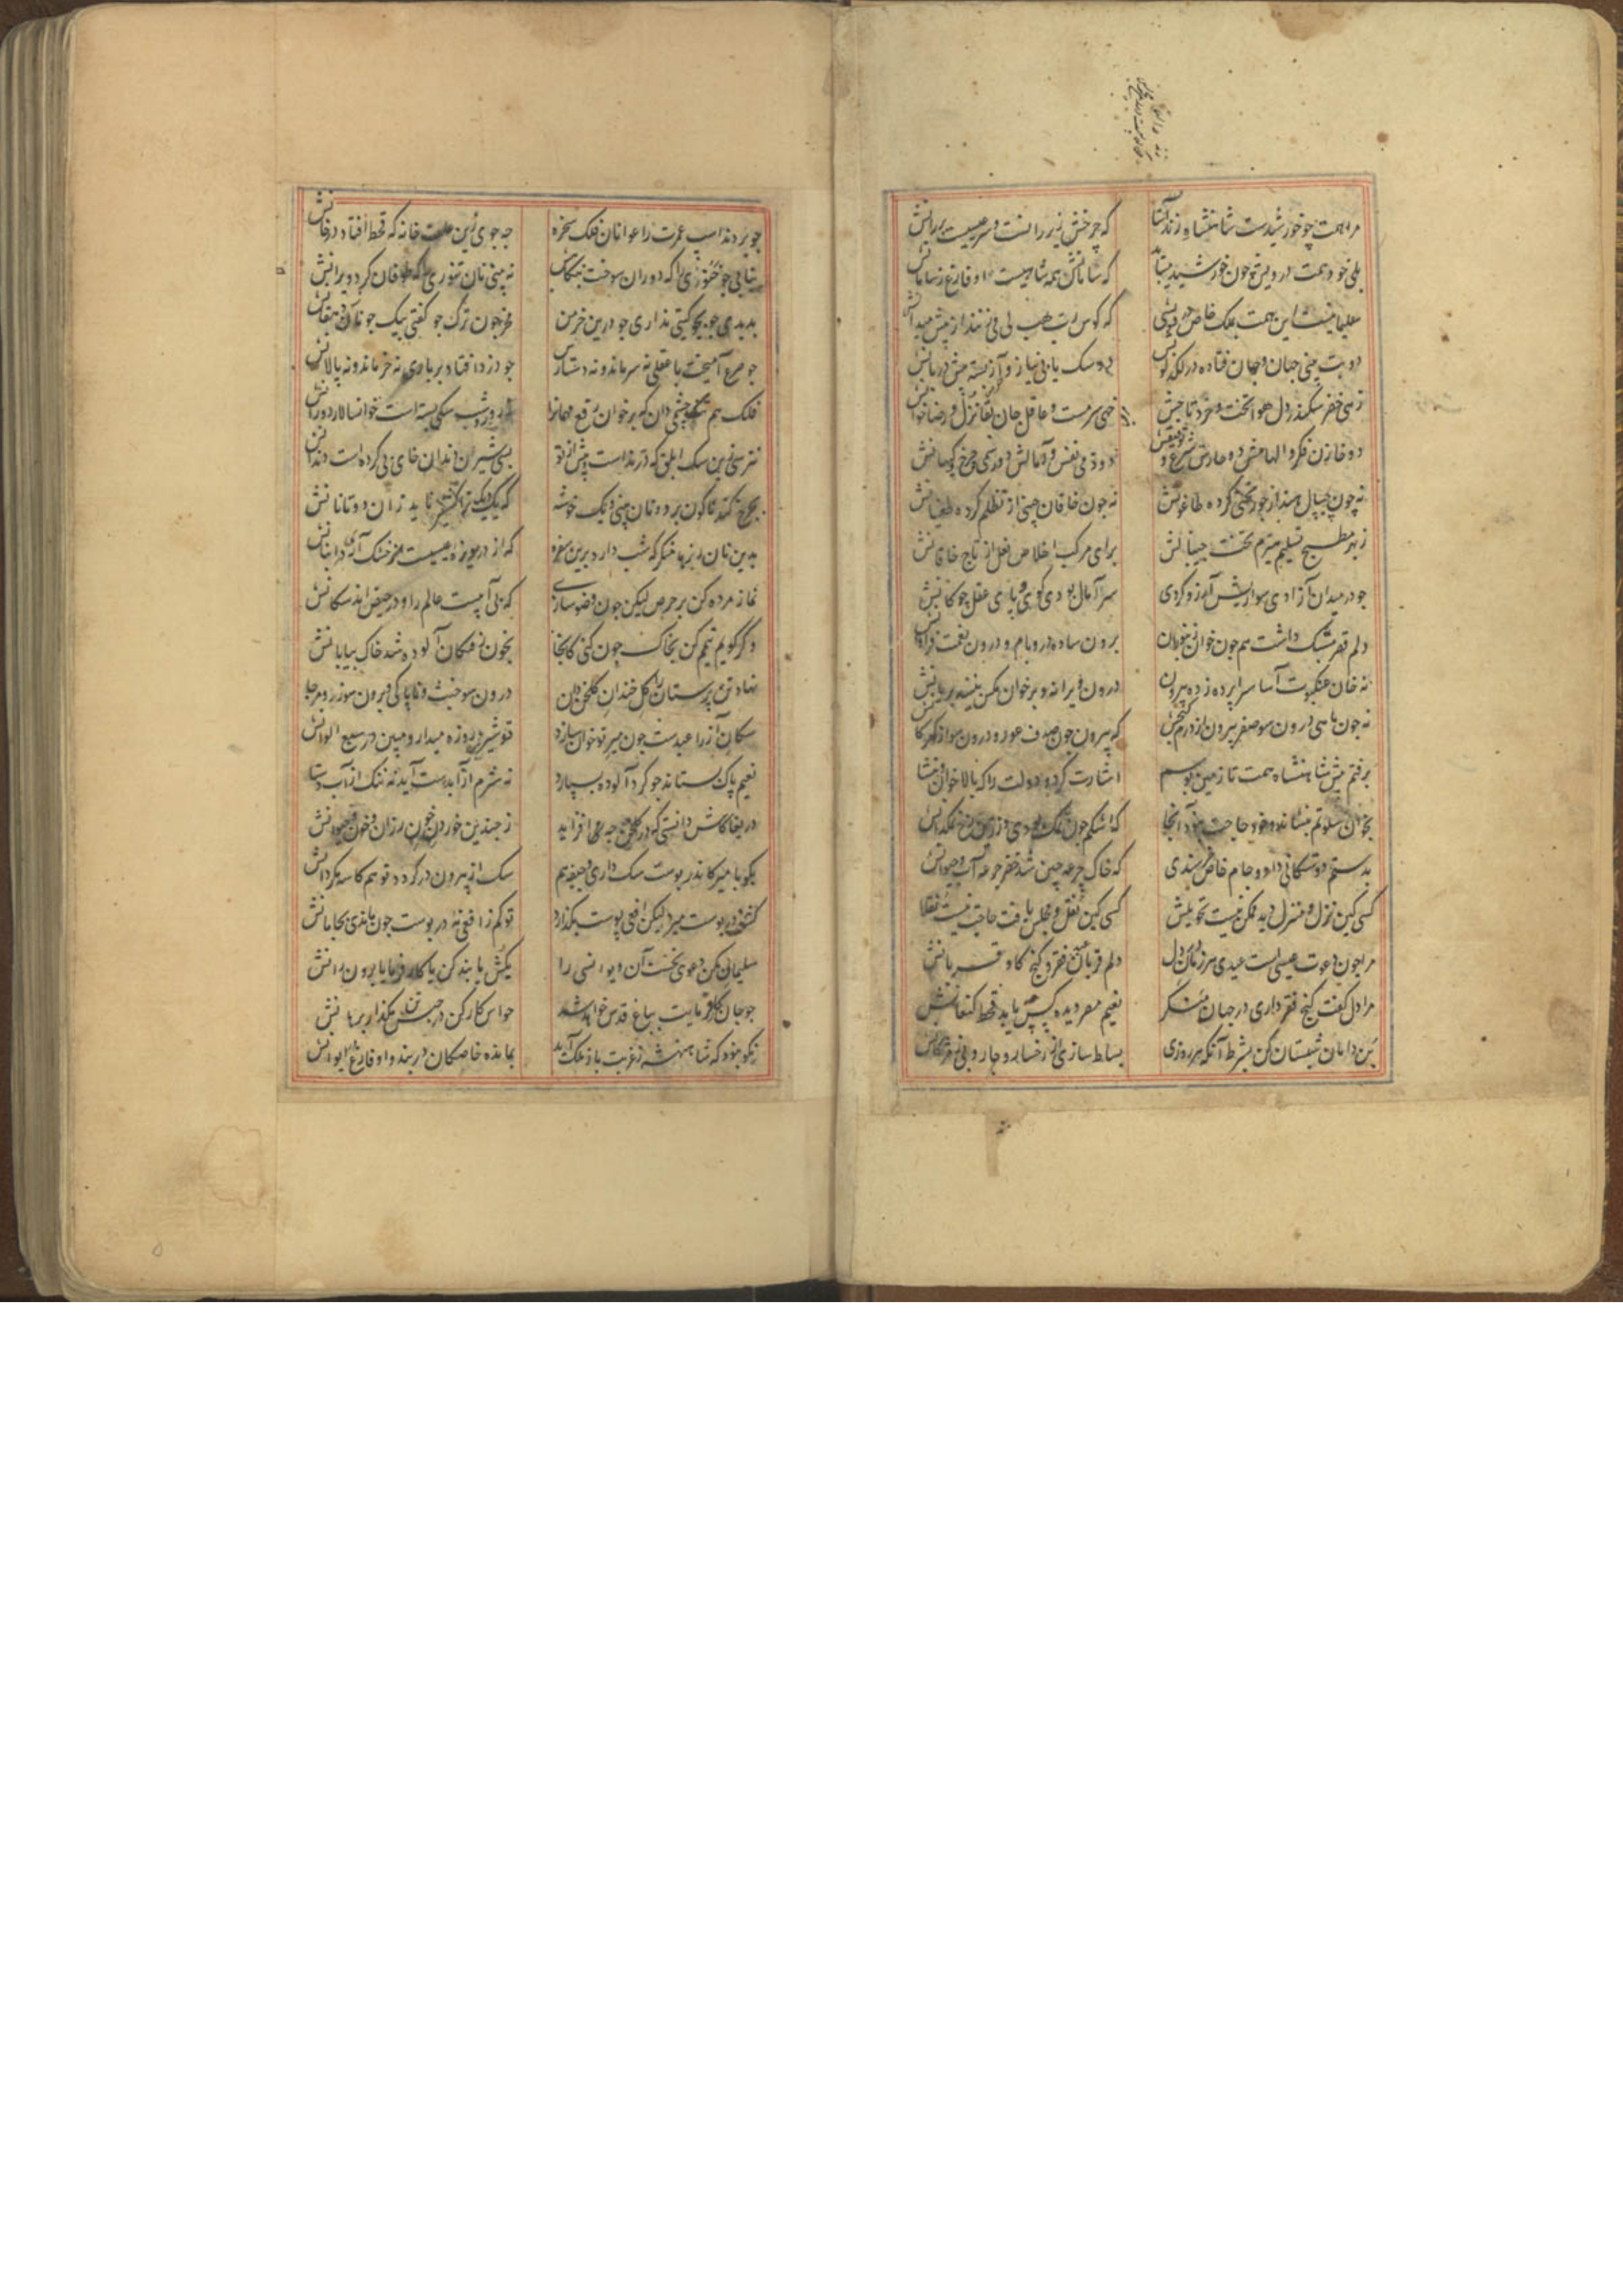 مرا همت چو خورشیدست شاهنشاه زند آستا که چرخش زیر رانست و سر عیسیست بر رانش
بلی خود همت درویش چون خورشید میباید که سامانش همه شاهیست او فارغ ز سامانش
سلیمانیست این همت بملک خاص درویشی که کوس رب هب لی می زنند از پیش میدانش
دو بت بینی جهان و جان فتاده در لکدکوبش دو سک یابی نیاز و آز بسته پیش دربانش
زهی خضر سکندر دل هوا تخت و خرد تاجش خهی سرمست عاقل جان بقا نزل و رضا خوانش
دو خازن فکر و الهامش دو حارس شرع و توفیقش دو ذمی نفس و آمالش دو رسمی چرخ و کیهانش
نه چون چیپال هند از جور تختی کرده طاغوتش نه جون خاقان چین از تظلم کرده طغیانش
ز بهر مطبخ تسلیم هیزم تخت چیپالش برای مرکب اخلاص نعل از تاج خاقانش
جو در میدان آزادی سواریش آرزو کردی سر آمال بودی کوی و پای عقل چوکانش
دلم قصر مشبک داشت هم جون خوان زنبوران برون ساده در و بام و درون نعمت فراوانش
نه خان عنکبوت آسا سراپرده زده بیرون درون ویرانه و بر خوان مکس بینند بریانش
نه جون ماهی درون سو صفر و بیرون از درم کنجش که بیرون جون صدف عور و درون سو از کهر کانش
برفتم پیش شاهنشاه همت تا زمین بوسم اشارت کرد دولت را که بالا خوان و بنشانش
بخوان سلوتم بنشاند و خود حاجت نبود آنجا که اشکم جون نمک بودی و زرین رخ نمکدانش
بدستم دوستکانی داد و جام خاص خرسندی که خاک جرعه چین شد خضر جرعه آب حیوانش
کسی کین نزل و منزل دید ممکن نیست تحویلش کسی کین نقل و مجلس یافت حاجت نیست نقلانش
مرا جون دعوت عیسی است عیدی هر زمان در دل دلم قربان عید فقر و کنج کاو قربانش
مرا دل کفت کنج فقر داری در جهان منکر نعیم مصر دیده کس چه باید قحط کنعانش
بن دامان شبستان کن بشرط آنکه هر روزی بساط سازی از رخسار و جاروبی ز مژکانش
جو بردند اسپ عمرت را عوانان فلک سخره جه جوی زین علف خانه که قحط افتاد در خانش
نیابی جو جنوری را که دوران سوخت بنکاهش نه بینی نان تنوری را که طوفان کرد ویرانش
بدیدی جو بجو کیتی نداری جو درین خرمن مخر جون ترک جو کفتی بیک جو ناز دهقانش
جو صرع آمیخت با عقلی نه سر ماند و نه دستارش جو دزد افتاد بر باری نه خر ماند و نه پالانش
فلک هم تنک چشمی دان که بر خوان دفع مهمانرا ز روز و شب سکی بسته است خوانسالار دورانش
نترسی زین سک ابلق که درنده است پیش از تو بسی شیران دندان خای بی کرده است دندانش
بچرخ کندناکون بر دو نان بینی ز یک خوشه که یک دیک ترا کشنیز ناید زان دو تا نانش
بدین نان ریزها منکر که شب دارد برین سفره که از دریوزه عیسیست خشک آردی در انبانش
نماز مرده کن بر حرص لیکن جون وضو سازی که بی آبیست عالم را و در حیض اند سکانش
وکر کویم تیمم کن بخاک چون کنی کانجا بخون آلوده شد خاک بیابانش
نهاد تن پرستان را کل خندان کلخن دان درون سو خبث و ناپاکی و بیرون سو زر و مرجانش
سکان آز را عیدست جون میر تو خوان سازد تو شیری روزه میدار و مبین در سبع الوانش
نعیم پاک بستاند جو کرد آلوده بسپارد نه شرم از آبدست آید نه ننک از آب دستانش
دریغا کاش دانستی که در کلخن جه می افزاید ز جندین خوردن خون رزان و خون حیوانش
بکو با میر کاندر پوست سک داری و جیفه هم سک از بیرون در کردد تو هم کاسه مکردانش
کشف در پوست میرد لیکن افعی پوست بکذارد تو کم ز افعی نه در پوست جون ماندی بجا مانش
سلیمانی مکن دعوی نخست آن دیو انسی را بکش یا بند کن یا کار فرما یا برون رانش
جو جان کار فرمایت بباغ قدس خواهد شد حواس کار کن در حبس تن مکذار برهانش
نکو نبود که شاهنشه ز غربت باز ملک آید بمانده خاصکان در بند و او فارغ در ایوانش